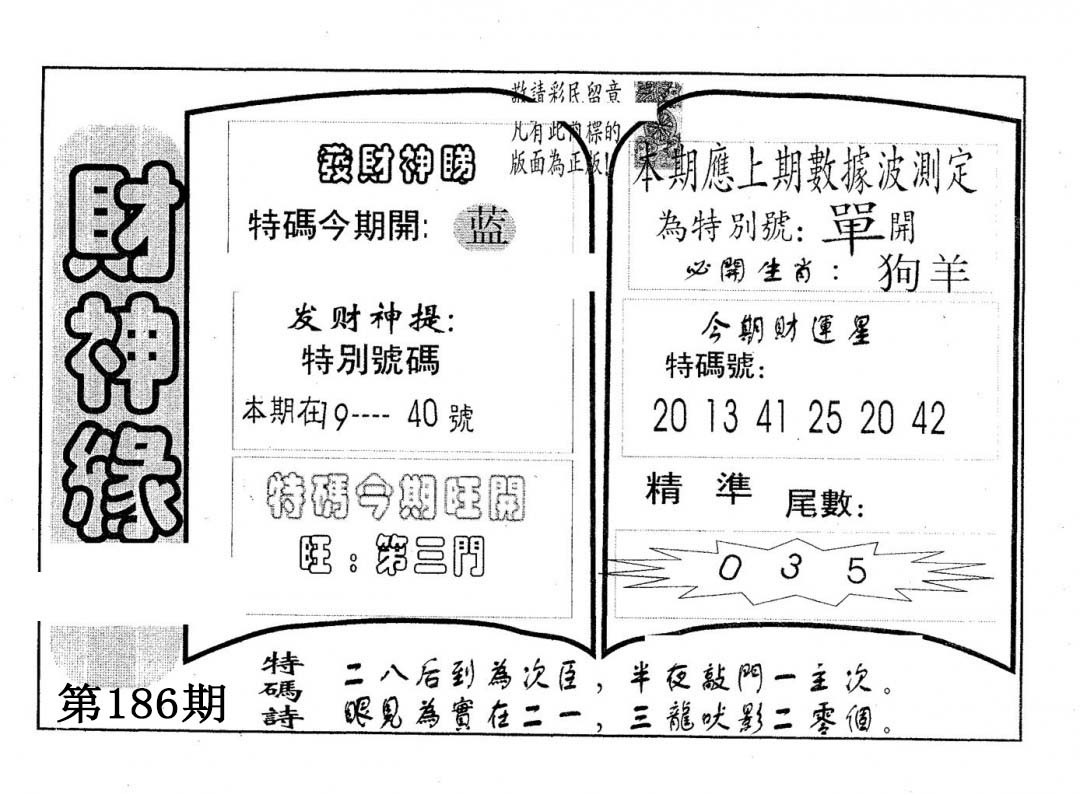 財神緣
第186期
敬請彩民留意
凡有此商標的
版面為正版!
發財神睇
特碼今期開: 蓝
发财神提:
特別號碼
本期在19---- 40號
特碼今期旺開
旺:第三門
本期應上期數據波測定
為特別號: 單開
必開生肖: 狗羊
今期財運星
特碼號:
20 13 41 25 20 42
精準 尾數:
0 3 5
特碼詩
二八后到為次臣,半夜敲門一主次。
眼見為實在二一,三龍吠影二零個。